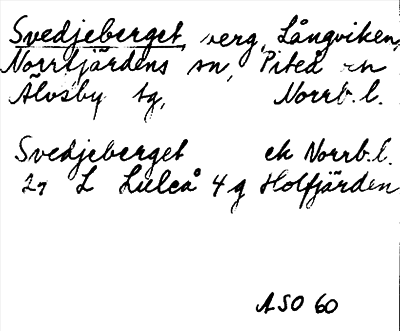 Svedjeberget, berg, Långviken,
Norrfjärdens sn, Piteå en
Älvsby tg, Norrb. l.
Svedjeberget ek Norrb. l.
27 L Luleå 4 g Holfjärden
ASO 60